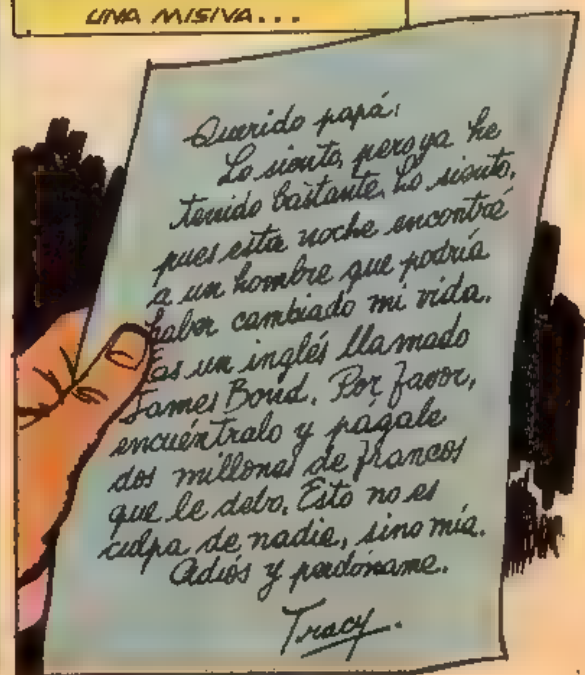 UNA MISIVA...
Querido papá:
Lo siento, pero ya he
tenido bastante. Lo siento,
pues esta noche encontré
a un hombre que podría
haber cambiado mi vida.
Es un inglés llamado
James Bond. Por favor,
encuéntralo y págale
dos millones de francos
que le debo. Esto no es
culpa de nadie, sino mía.
Adiós y perdóname.
Tracy.